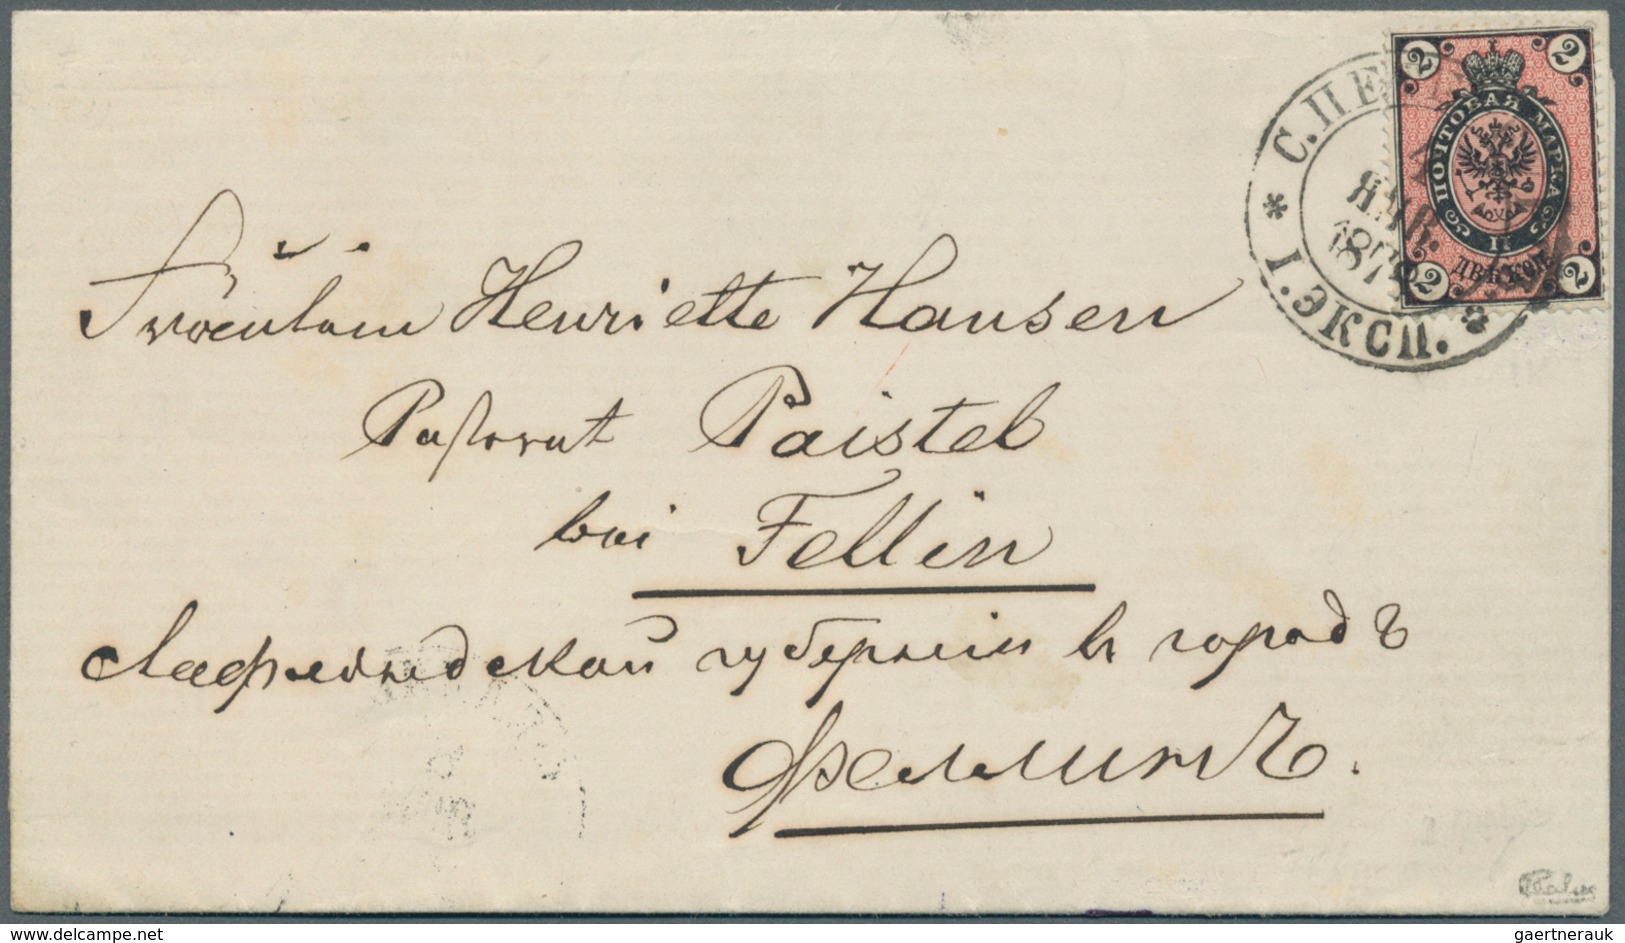 2 2
ПОЧТОВАЯ МАРКА
II
ДВѢ КОП.
2 2
С.ПЕ
ЯНВ.
187
I. ЭКСП.
Fräulein Henriette Hansen
Pastorat Paistel
bei Fellin
Лифляндской губерніи въ городъ
Феллинъ.
delcampe.net
gaertnerauk